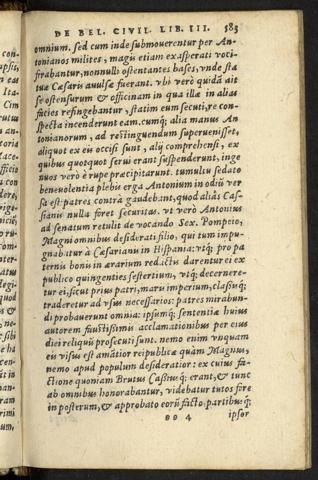 DE BEL. CIVIL. LIB. III. 583
omnium. sed cum inde submouerentur per An-
tonianos milites, magis etiam exasperati voci-
ferabantur, nonnulli ostentantes bases, vnde sta
tuæ Cæsaris auulsæ fuerant. vbi verò quidã ait
se ostensurum & officinam in qua illæ in alias
facies refingebantur, statim eum secuti, re con-
specta incenderunt eam. cumq; alia manus An
tonianorum, ad restinguendum superuenisset,
aliquot ex eis occisi sunt, alij comprehensi, ex
quibus quotquot serui erant suspenderunt, inge
nuos verò è rupe præcipitarunt. tumultu sedato
beneuolentia plebis erga Antonium in odiũ ver
sa est: patres contrà gaudebant, quod aliàs Cas-
siani nulla foret securitas. vt verò Antonius
ad senatum retulit de vocando Sex. Pompeio,
Magni omnibus desiderati filio, qui tum impu-
gnabitur à Cæsarianis in Hispania: vtq; pro pa
ternis bonis in ærarium redactis darentur ei ex
publico quingenties sestertium, vtq; decernere-
tur ei, sicut prius patri, maris imperium, clasſsiq;
traderetur ad vsus necessarios: patres mirabun-
di probauerunt omnia: ipsumq; sententiæ huius
autorem faustissimis acclamationibus per eius
diei reliquũ prosecuti sunt. nemo enim vnquam
eis visus est amãtior reipublicæ quàm Magnus,
nemo apud populum desideratior: ex cuius fa-
ctione quoniam Brutus Cassiusq; erant, & tunc
ab omnibus honorabantur, videbatur tutos fore
in posterum, & approbato eorũ facto, partibusq;
oo 4
ipsor